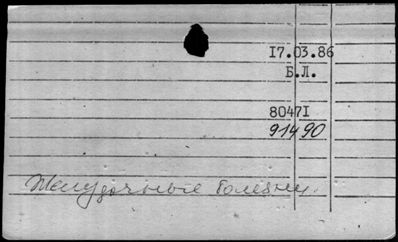 17.03.86
Б.Л.
80471
91490
Желудочные болезни.